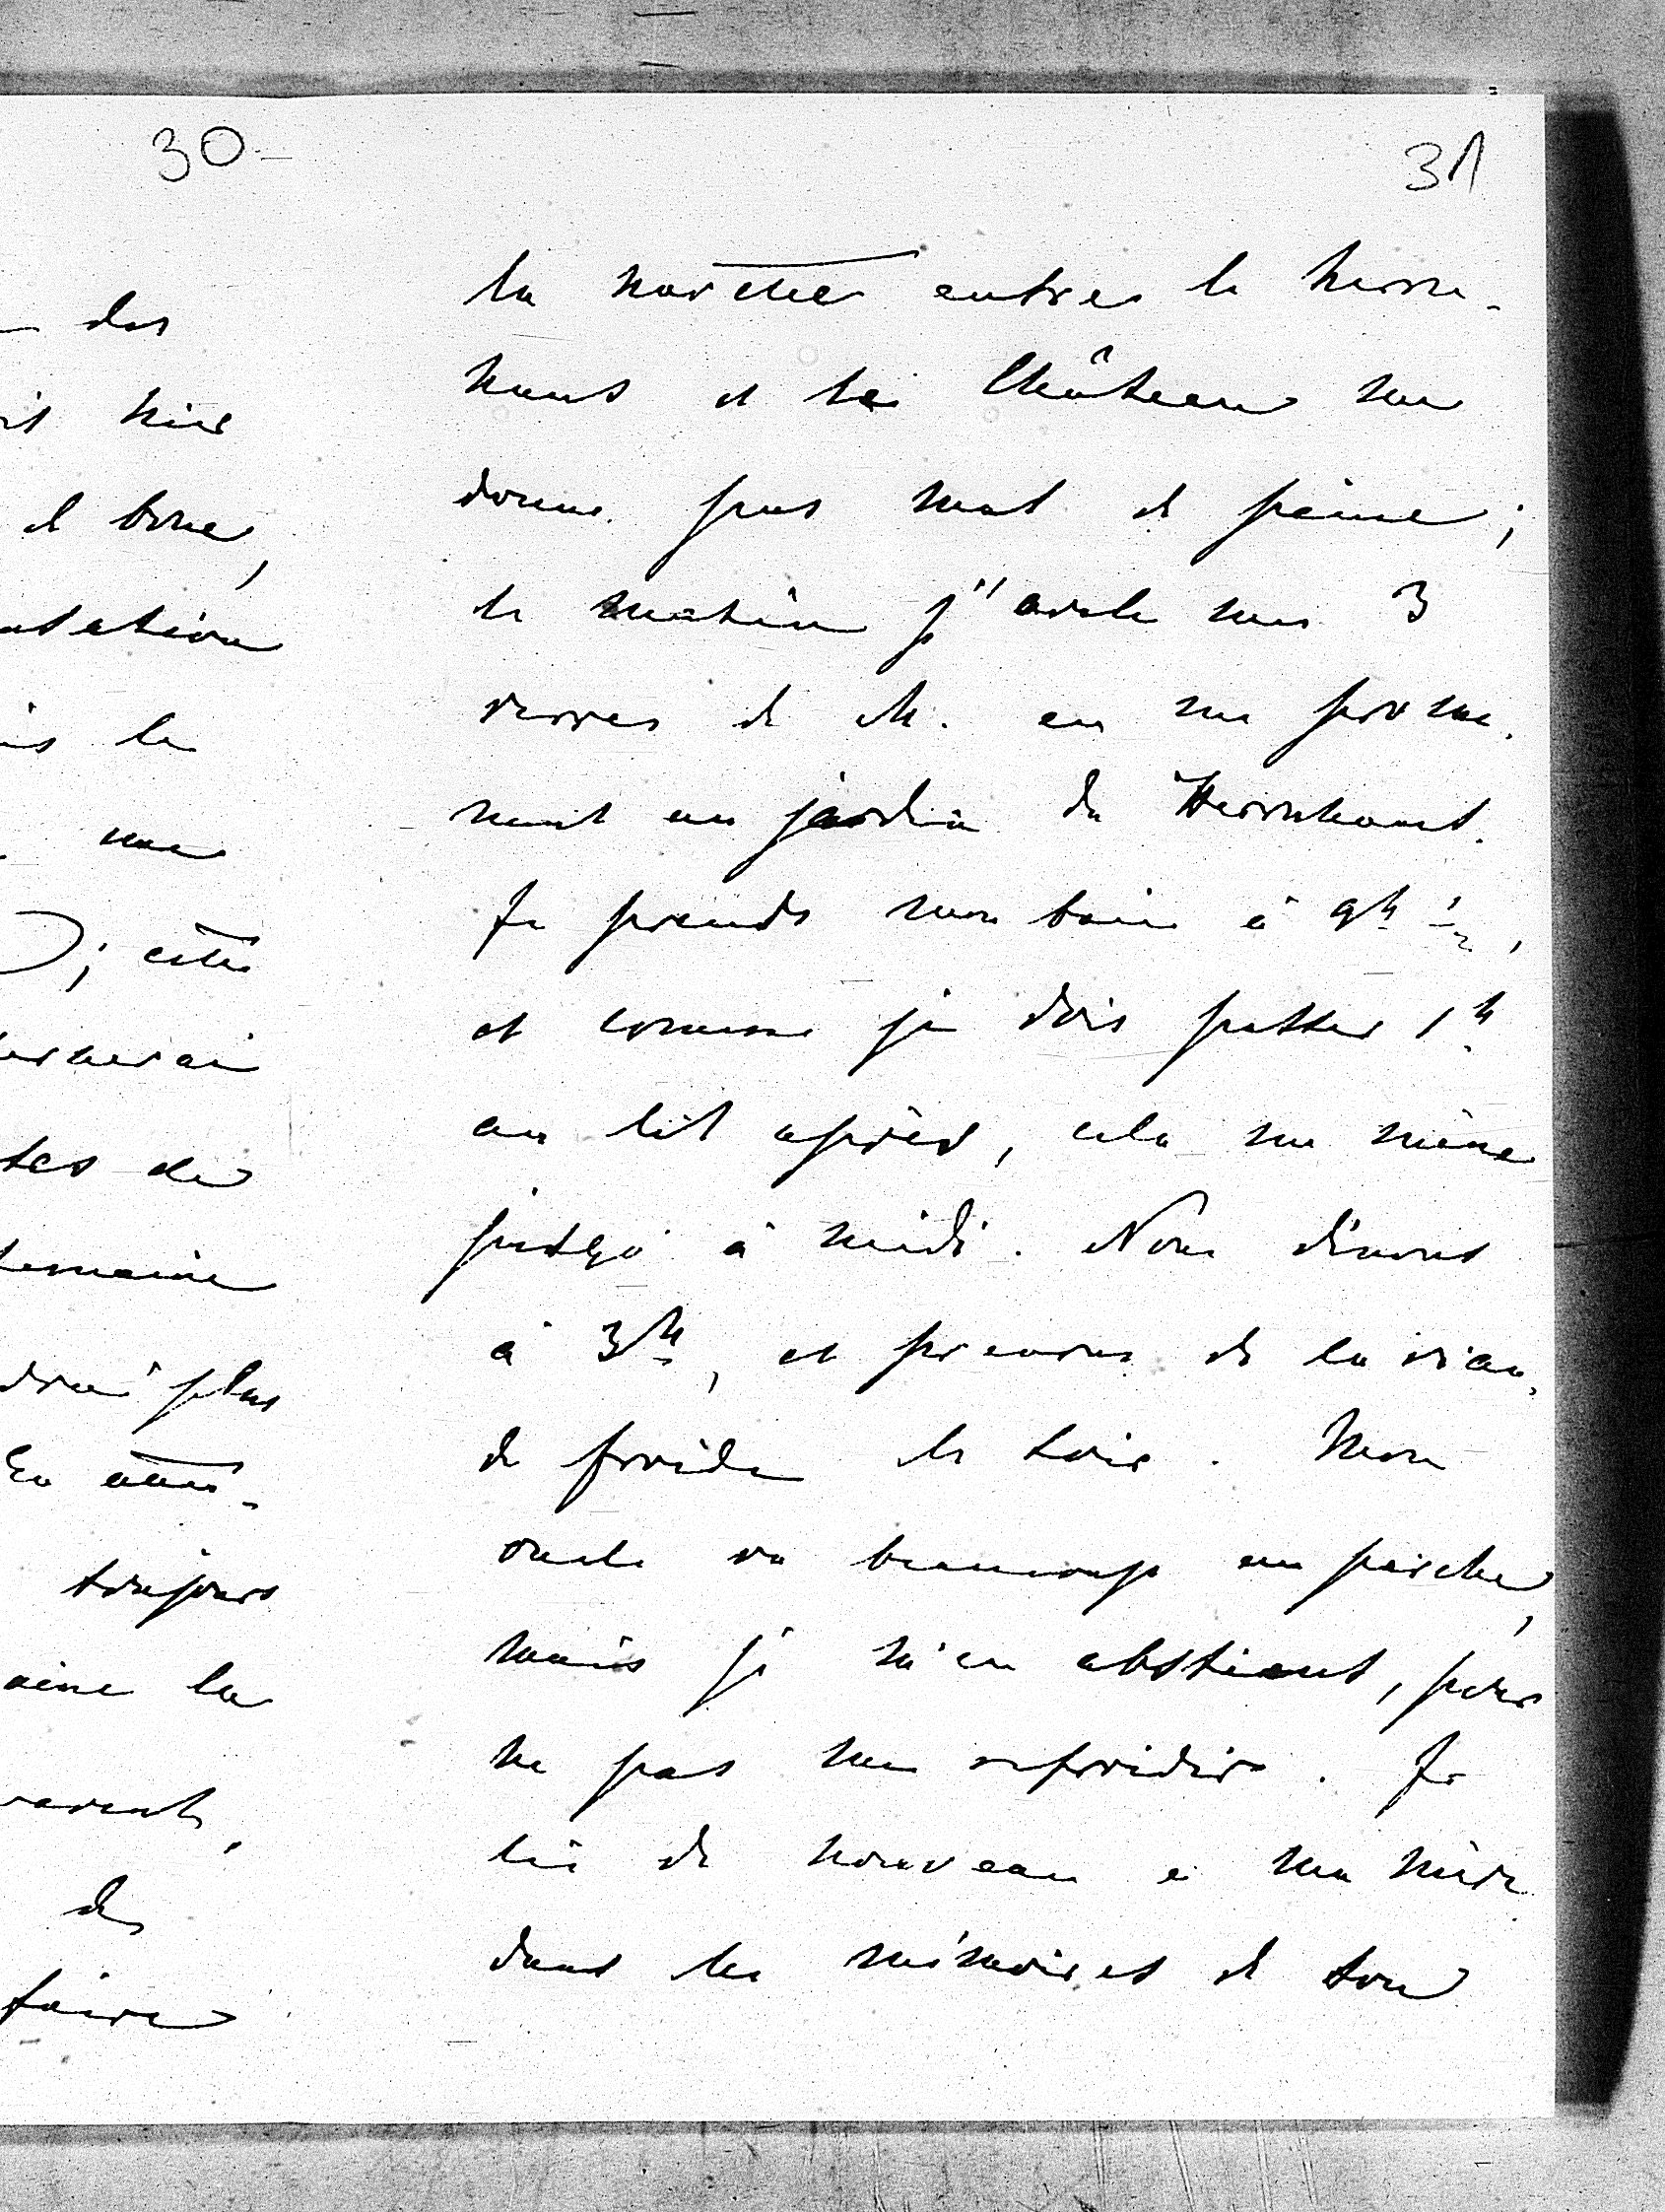 30
31
des
et boue,
la
une
; cette
tes de
semaine
plus
En atten-
toujours
la
des
faire
la navette entre le Herrn-
haus et le Château me
donne pas mal de peine;
le matin j'avale mes 3
verres de M. en me prome-
nant au jardin du Herrnhaus.
Je prends mon bain à 9h 1/2,
et comme je dois passer 1h
au lit après, cela me mène
jusqu'à midi. Nous dînons
à 3h, et prenons de la vian-
de froide le soir. Mon
oncle va beaucoup en perche,
mais je m'en abstiens, pour
ne pas me refroidir. Je
lis de nouveau à ma mère
dans les mémoires de son